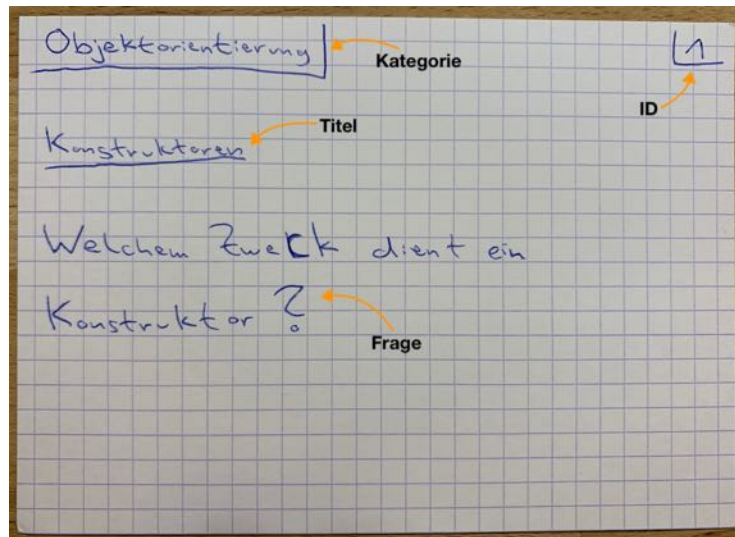 Objektorientierung
Kategorie
1
ID
Titel
Konstruktoren
Welchem Zweck dient ein
Konstruktor?
Frage